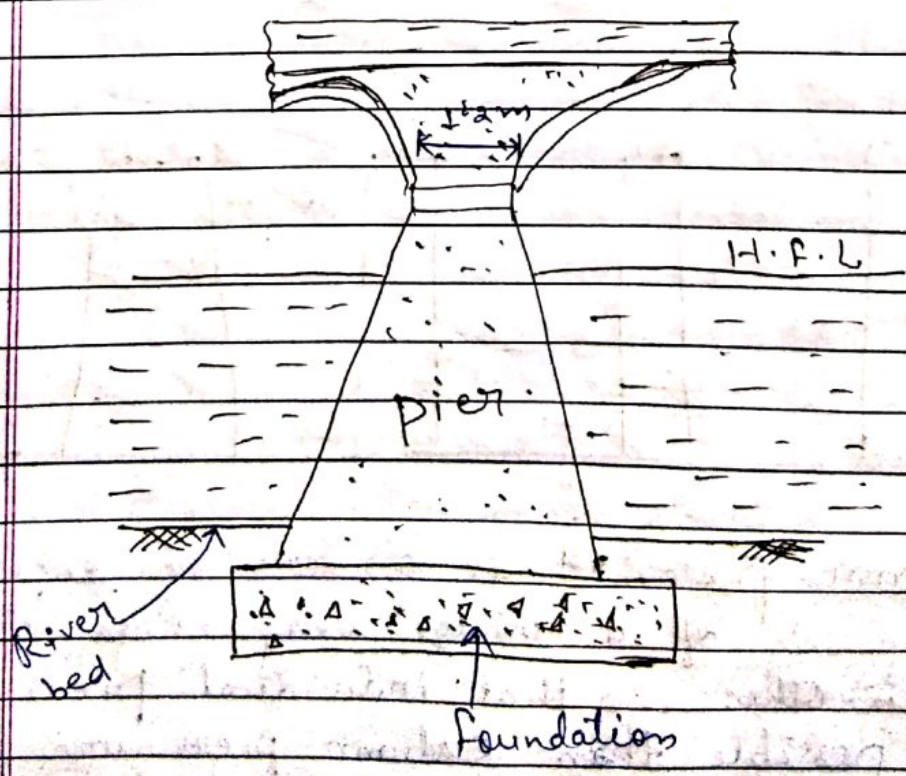 1.2m
H.F.L
pier
River
bed
foundation